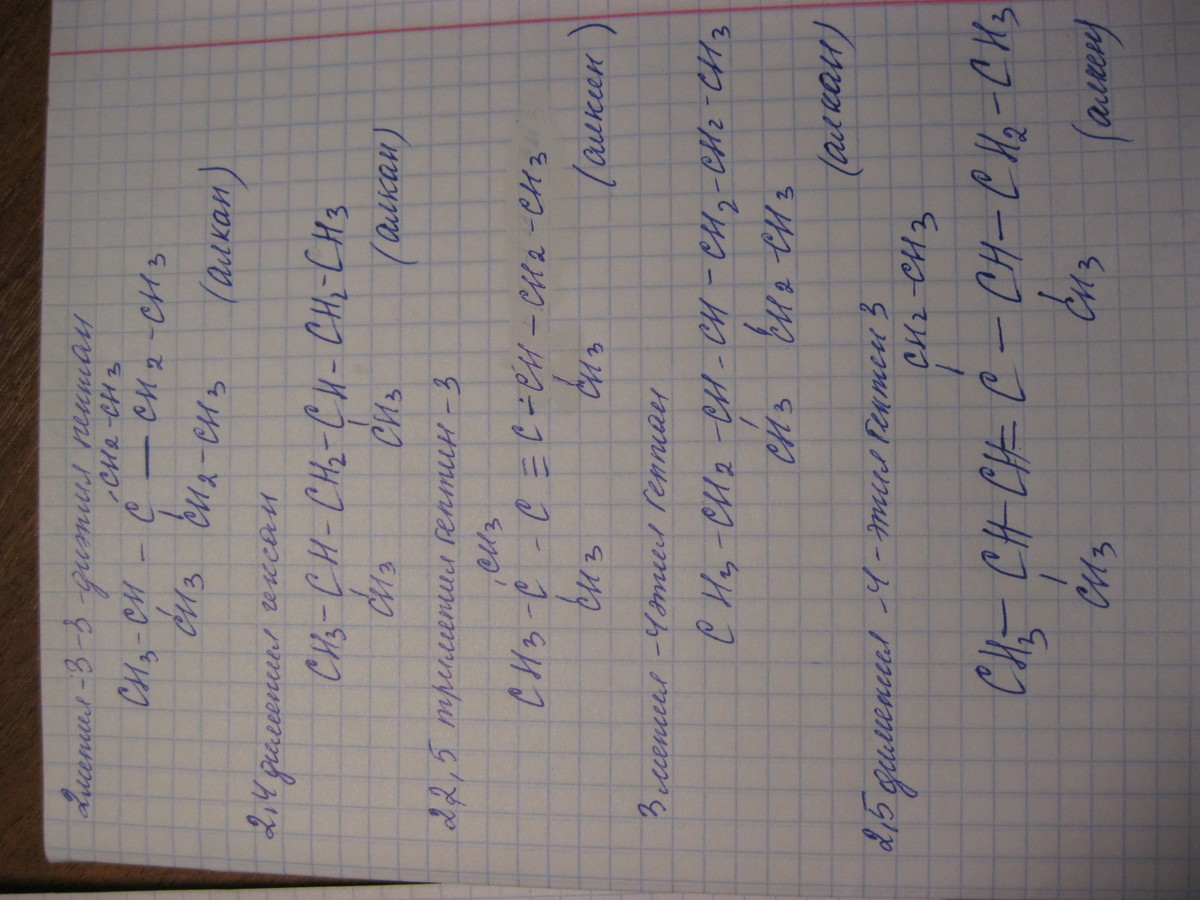 2метил-3-3-диэтил пентан
CH2-CH3
CH3-CH-C—CH2-CH3
CH3 CH2-CH3
(алкан)
2,4 диметил гексан
CH3-CH-CH2-CH-CH2-CH3
CH3 CH3
(алкан)
2,2,5 триметил гептин-3
CH3
CH3-C-C≡C-CH-CH2-CH3
CH3 CH3
(алкин)
3 метил-4этил гептан
CH3-CH2-CH-CH-CH2-CH2-CH3
CH3 CH2-CH3
(алкан)
2,5 диметил-4-этил гептен 3
CH2-CH3
CH3—CH—CH=C—CH—CH2-CH3
CH3 CH3
(алкен)